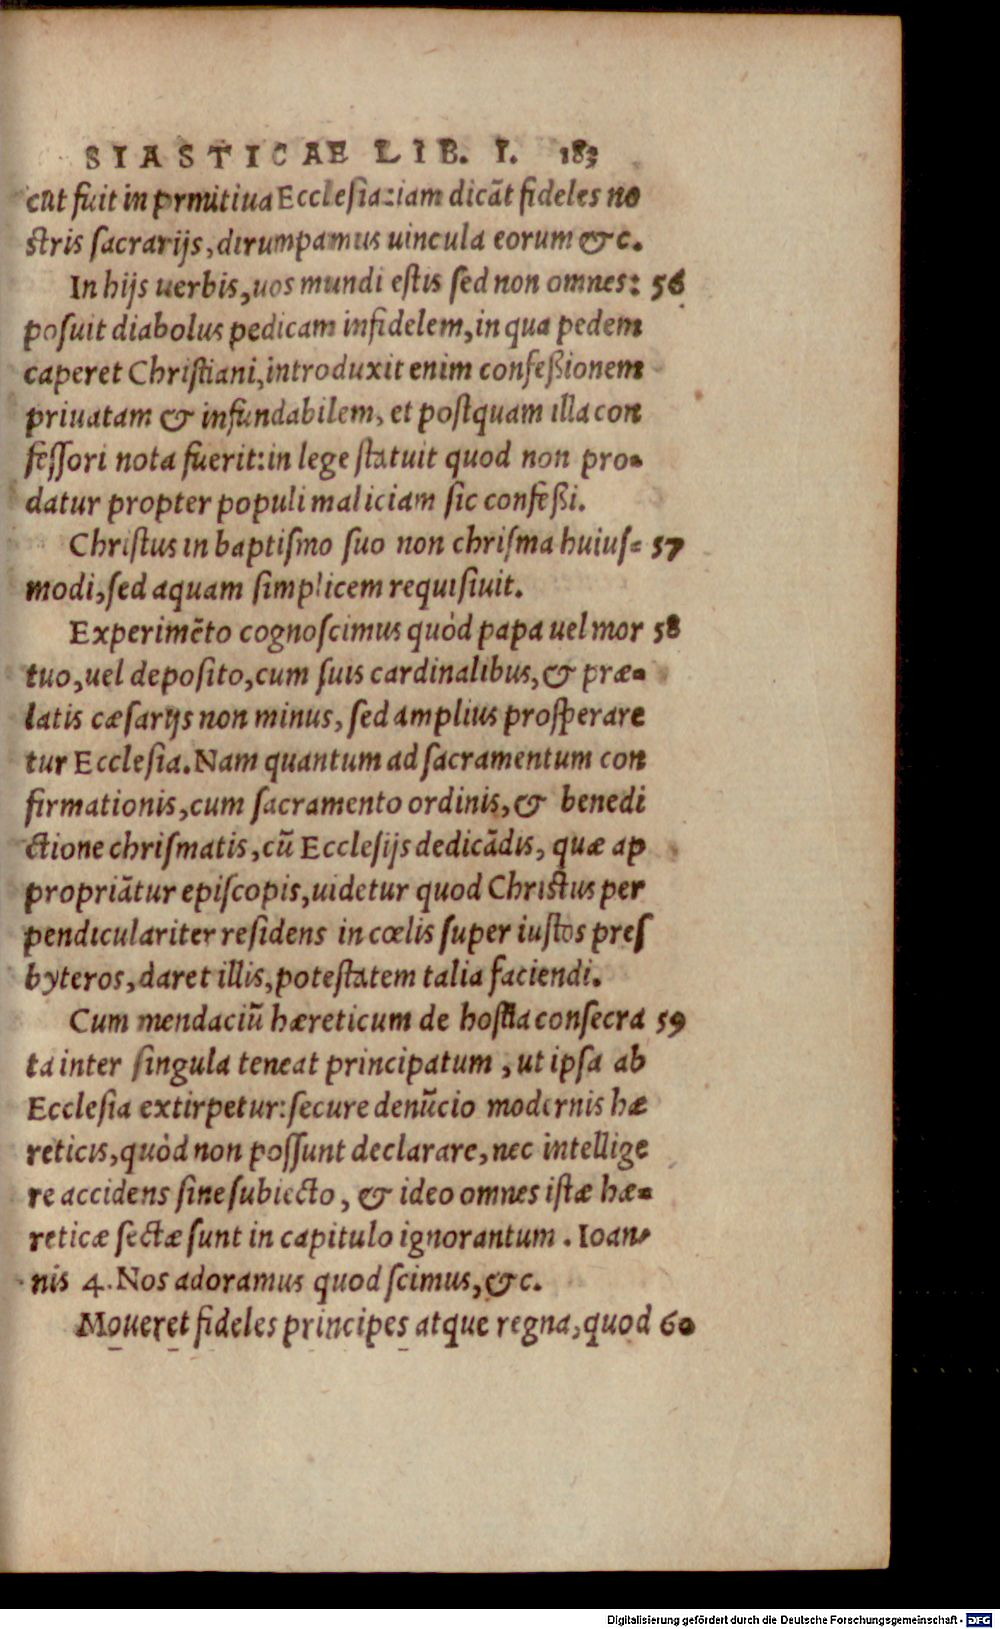 SIASTICAE LIB. I. 183
cut fuit in prmitiua Ecclesia: iam dicāt fideles no
stris sacrarijs, dirumpamus uincula eorum &c.
In hijs uerbis, uos mundi estis sed non omnes: 56
posuit diabolus pedicam infidelem, in qua pedem
caperet Christiani, introduxit enim confeßionem
priuatam & infundabilem, et postquam illa con
fessori nota fuerit: in lege statuit quod non pro-
datur propter populi maliciam sic confeßi.
Christus in baptismo suo non chrisma huius= 57
modi, sed aquam simplicem requisiuit.
Experimēto cognoscimus quòd papa uel mor 58
tuo, uel deposito, cum suis cardinalibus, & præ-
latis cæsarijs non minus, sed amplius prosperare
tur Ecclesia. Nam quantum ad sacramentum con
firmationis, cum sacramento ordinis, & benedi
ctione chrismatis, cū Ecclesijs dedicādis, quæ ap
propriātur episcopis, uidetur quod Christus per
pendiculariter residens in cœlis super iustos pres
byteros, daret illis, potestatem talia faciendi.
Cum mendaciū hæreticum de hostia consecra 59
ta inter singula teneat principatum, ut ipsa ab
Ecclesia extirpetur: secure denūcio modernis hæ
reticis, quòd non possunt declarare, nec intellige
re accidens sine subiecto, & ideo omnes istæ hæ-
reticæ sectæ sunt in capitulo ignorantum. Ioan-
nis 4. Nos adoramus quod scimus, &c.
Moueret fideles principes atque regna, quod 60
Digitalisierung gefördert durch die Deutsche Forschungsgemeinschaft - DFG